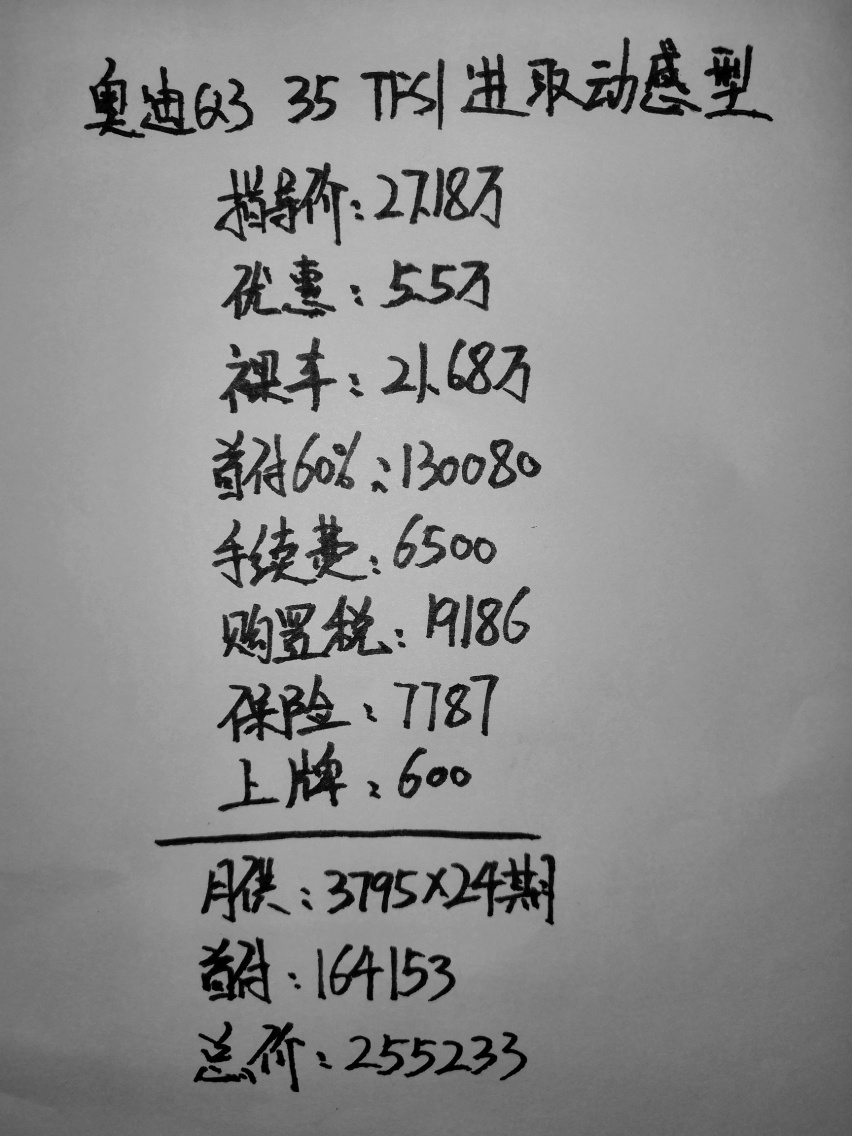 奥迪Q3 35 TFSI 进取动感型
指导价：27.18万
优惠：5.5万
裸车：21.68万
首付60%：130080
手续费：6500
购置税：19186
保险：7787
上牌：600
月供：3795×24期
首付：164153
总价：255233